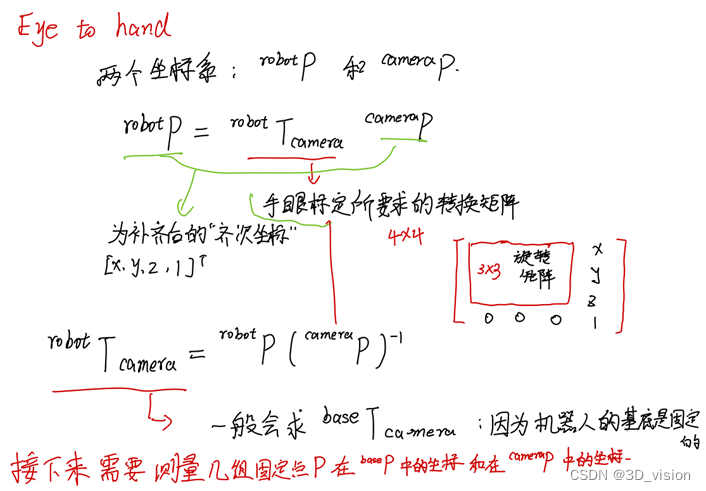 Eye to hand
两个坐标系: robotP 和 cameraP.
robotP = robotTcamera cameraP
手眼标定所要求的转换矩阵
为补齐后的"齐次坐标"
4×4
[x, y, z, 1]ᵀ
3×3 旋转矩阵 x
y
z
0 0 0 1
robotTcamera = robotP (cameraP)⁻¹
一般会求 baseTcamera : 因为机器人的基底是固定的
接下来需要测量几组固定点P在baseP中的坐标和在cameraP中的坐标
CSDN @3D_vision